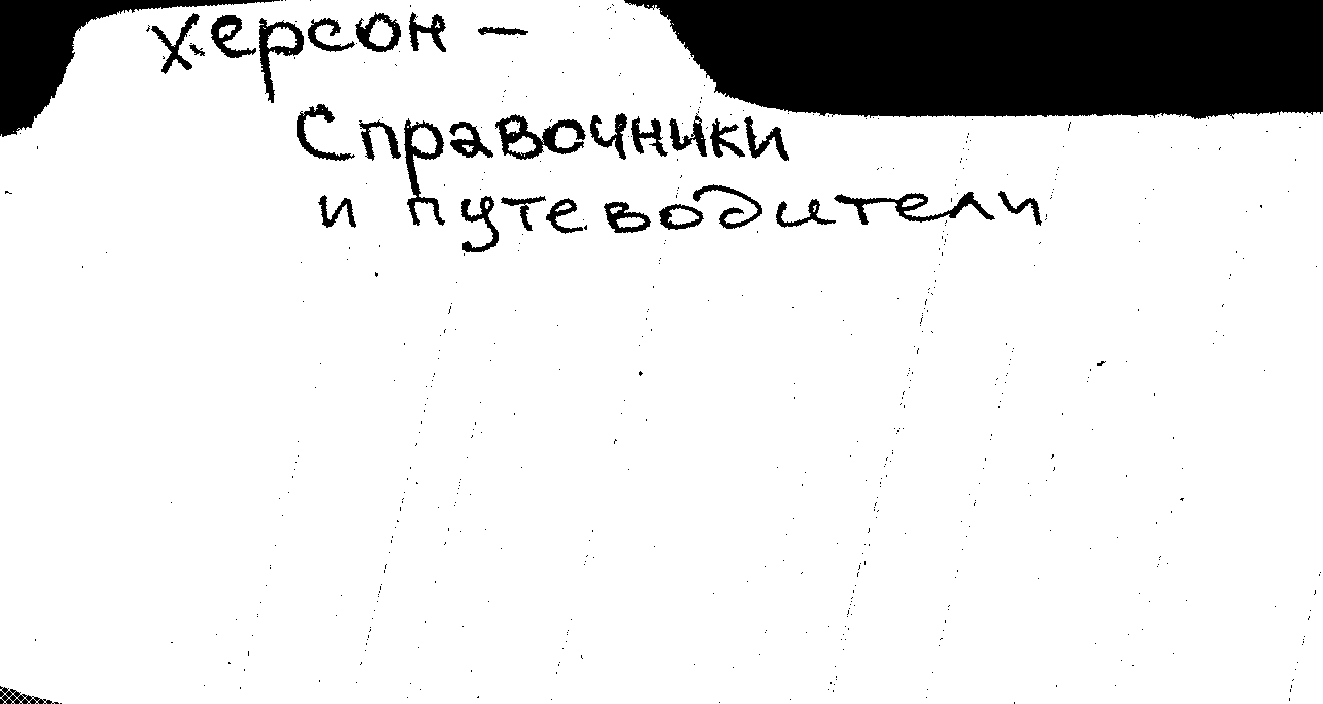 Херсон –
Справочники
и путеводители